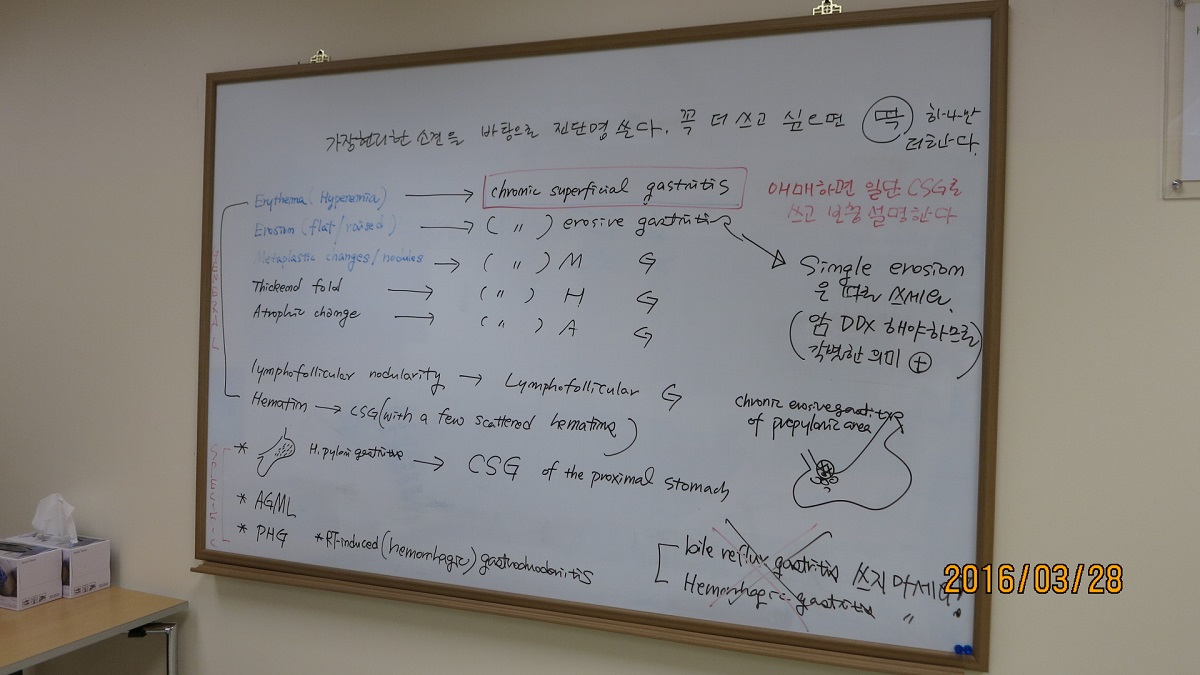 가장현저한 소견을 바탕으로 진단명 쓴다. 꼭 더 쓰고 싶으면 딱 하나만
더한다.
Erythema (Hyperemia) → chronic superficial gastritis
애매하면 일단 CSG로
쓰고 보충설명한다
Erosion (flat/raised) → ( 〃 ) erosive gastritis
Metaplastic changes/nodules → ( 〃 ) M G
Thickend fold → ( 〃 ) H G
Atrophic change → ( 〃 ) A G
Single erosion
은 따로 쓰세요.
(암 DDX 해야하므로
각별한 의미 ⊕)
lymphofollicular nodularity → Lymphofollicular G
Hematin → CSG (with a few scattered hematins)
chronic erosive gastritis
of prepyloric area
* H. pylori gastritis → CSG of the proximal stomach
* AGML
* PHG * RT-induced (hemorrhagic) gastroduodenitis
bile reflux gastritis 쓰지 마세요!
Hemorrhagic gastritis 〃
SPECIFIC
2016/03/28